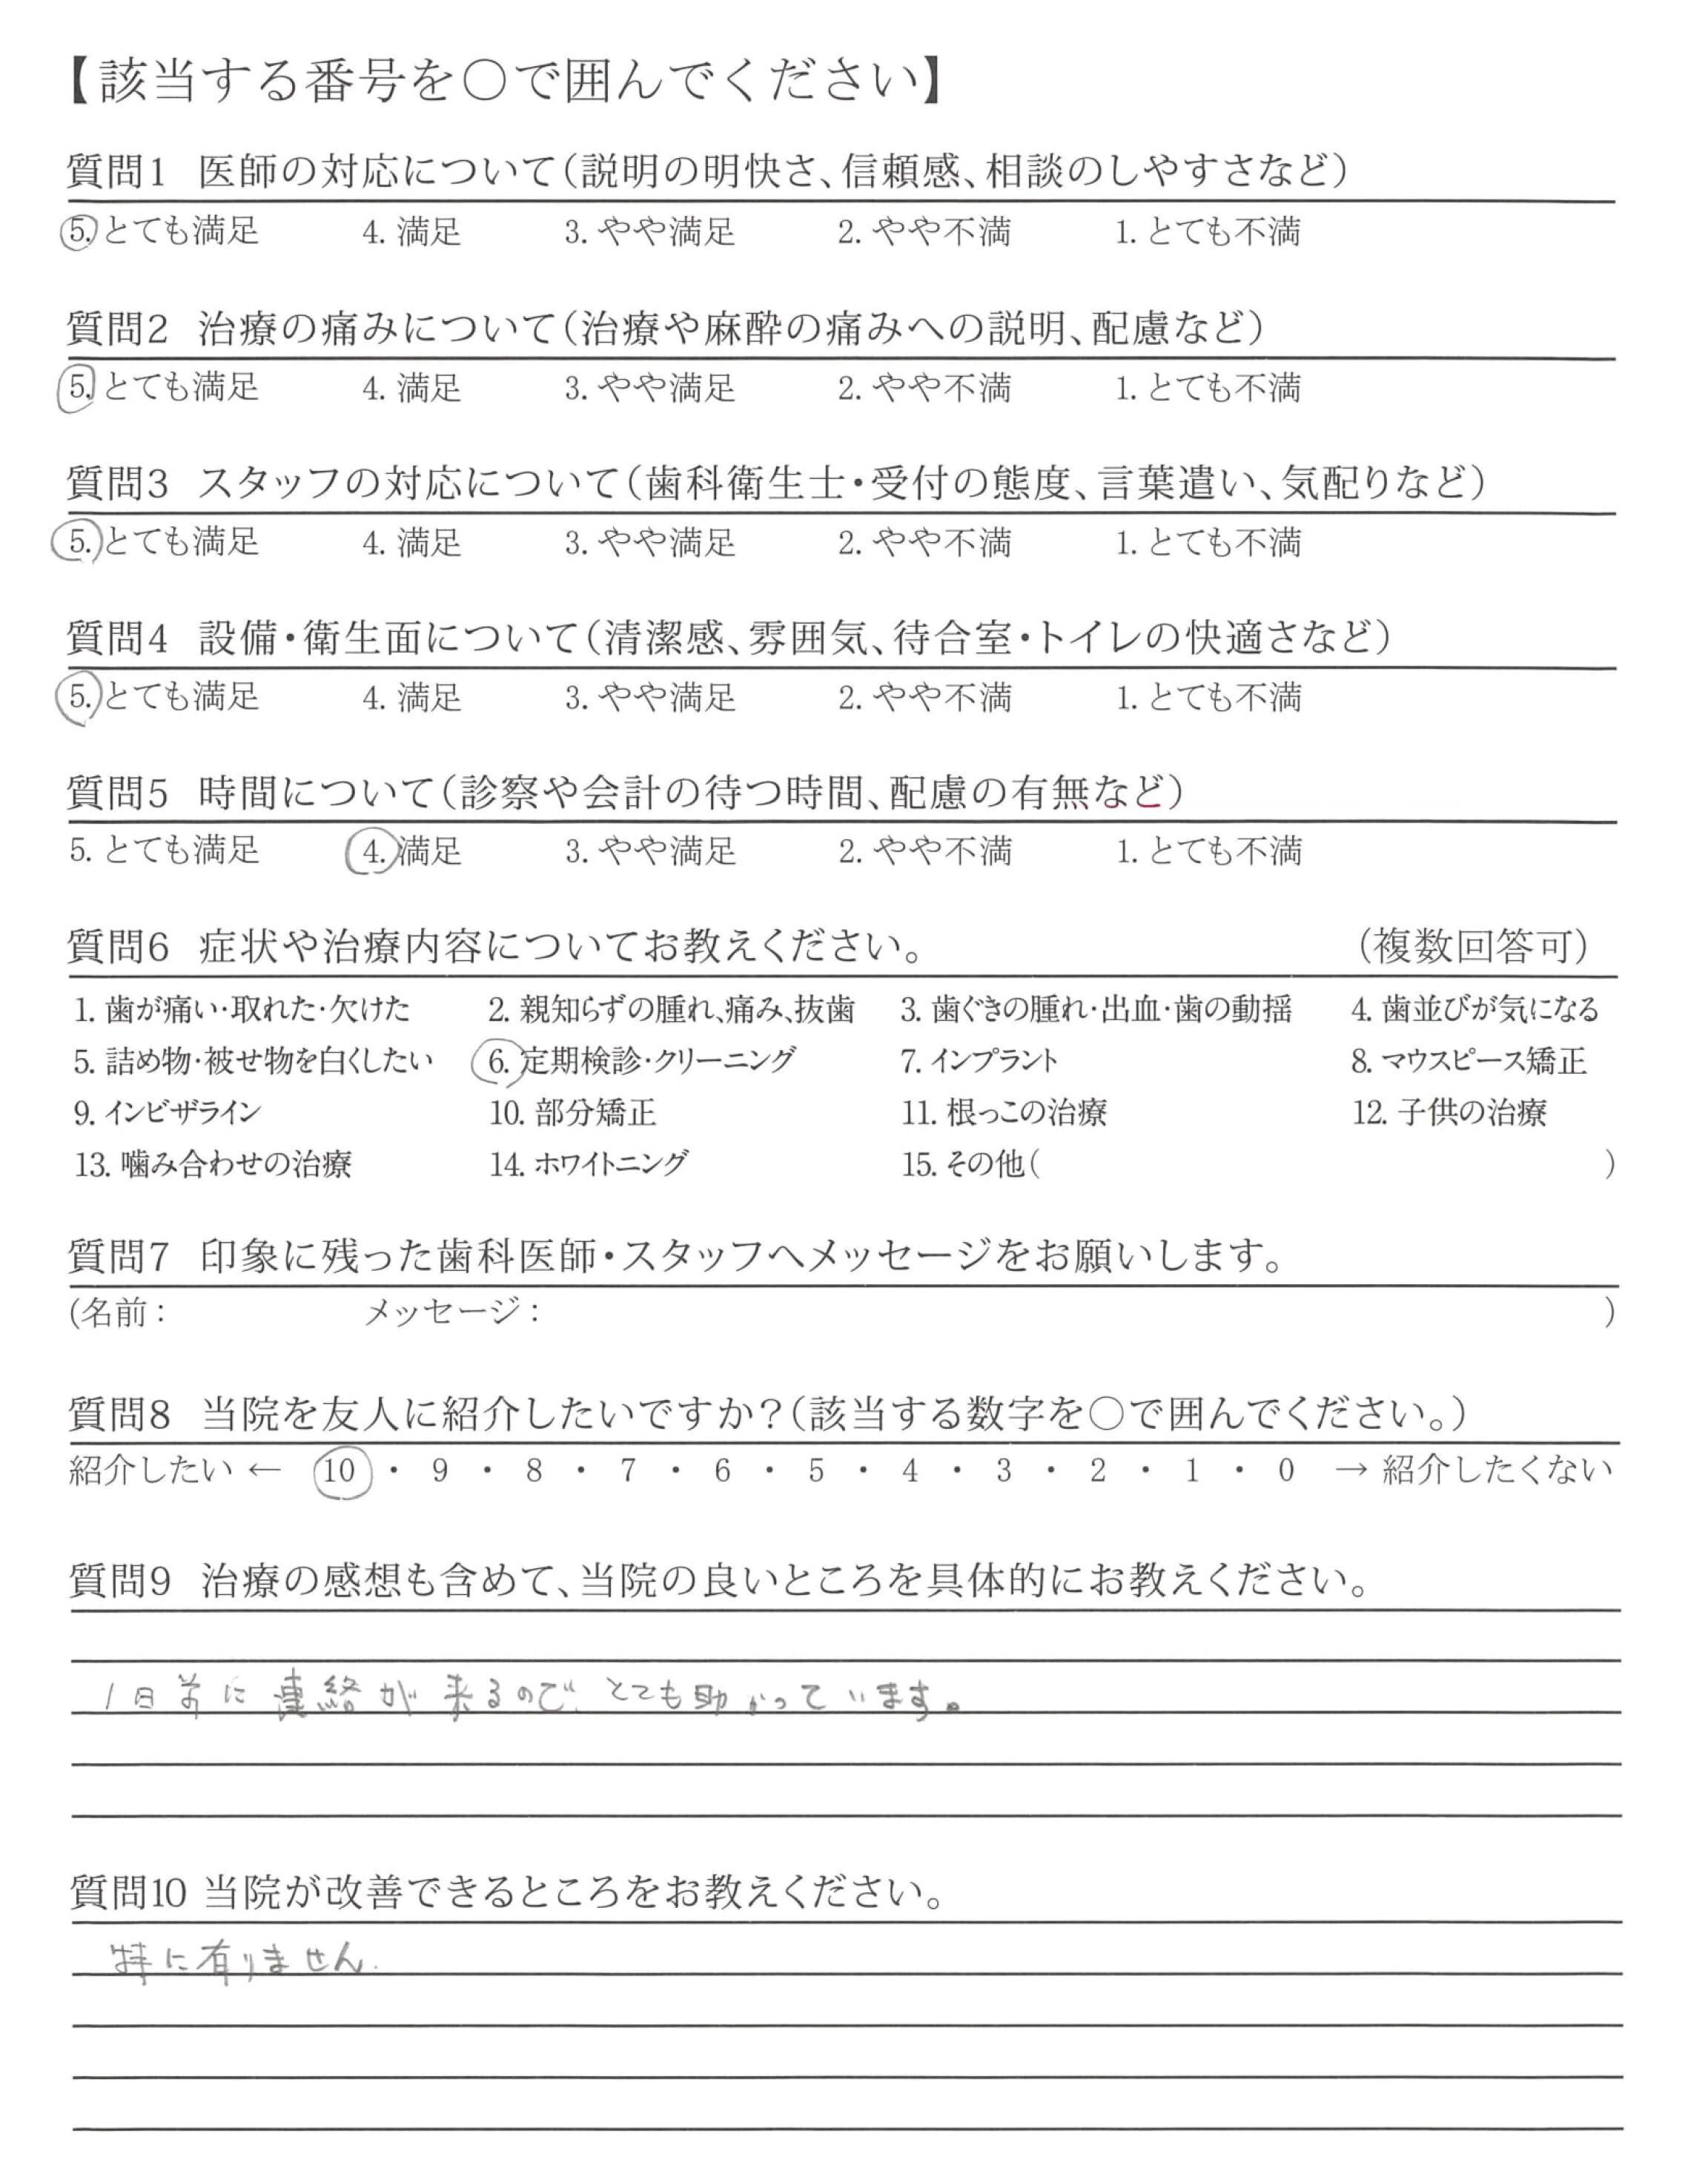 【該当する番号を○で囲んでください】
質問1 医師の対応について(説明の明快さ、信頼感、相談のしやすさなど)
5. とても満足 4. 満足 3. やや満足 2. やや不満 1. とても不満
質問2 治療の痛みについて(治療や麻酔の痛みへの説明、配慮など)
5. とても満足 4. 満足 3. やや満足 2. やや不満 1. とても不満
質問3 スタッフの対応について(歯科衛生士・受付の態度、言葉遣い、気配りなど)
5. とても満足 4. 満足 3. やや満足 2. やや不満 1. とても不満
質問4 設備・衛生面について(清潔感、雰囲気、待合室・トイレの快適さなど)
5. とても満足 4. 満足 3. やや満足 2. やや不満 1. とても不満
質問5 時間について(診察や会計の待つ時間、配慮の有無など)
5. とても満足 4. 満足 3. やや満足 2. やや不満 1. とても不満
質問6 症状や治療内容についてお教えください。 (複数回答可)
1. 歯が痛い・取れた・欠けた 2. 親知らずの腫れ、痛み、抜歯 3. 歯ぐきの腫れ・出血・歯の動揺 4. 歯並びが気になる
5. 詰め物・被せ物を白くしたい 6. 定期検診・クリーニング 7. インプラント 8. マウスピース矯正
9. インビザライン 10. 部分矯正 11. 根っこの治療 12. 子供の治療
13. 噛み合わせの治療 14. ホワイトニング 15. その他( )
質問7 印象に残った歯科医師・スタッフへメッセージをお願いします。
(名前: メッセージ: )
質問8 当院を友人に紹介したいですか?(該当する数字を○で囲んでください。)
紹介したい ← 10 ・ 9 ・ 8 ・ 7 ・ 6 ・ 5 ・ 4 ・ 3 ・ 2 ・ 1 ・ 0 → 紹介したくない
質問9 治療の感想も含めて、当院の良いところを具体的にお教えください。
1日前に連絡が来るので、とても助かっています。
質問10 当院が改善できるところをお教えください。
特に有りません.